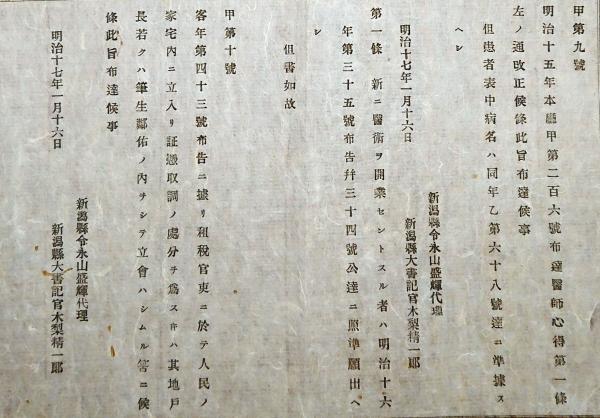 甲第九號
明治十五年本廳甲第二百六號布達醫師心得第一條
左ノ通改正候條此旨布達候事
但患者表中病名ハ同年乙第六十八號達ニ準據ス
ヘシ
新潟縣令永山盛輝代理
明治十七年一月十六日
新潟縣大書記官木梨精一郎
第一條 新ニ醫術ヲ開業セントスル者ハ明治十六
年第三十五號布告幷三十四號公達ニ照準願出ヘ
シ
但書如故
甲第十號
客年第四十三號布告ニ據リ租稅官吏ニ於テ人民ノ
家宅內ニ立入リ証憑取調ノ處分ヲ爲スキハ其地戶
長若クハ筆生鄰佑ノ內ヲシテ立會ハシムル筈ニ候
條此旨布達候事
新潟縣令永山盛輝代理
明治十七年一月十六日
新潟縣大書記官木梨精一郎